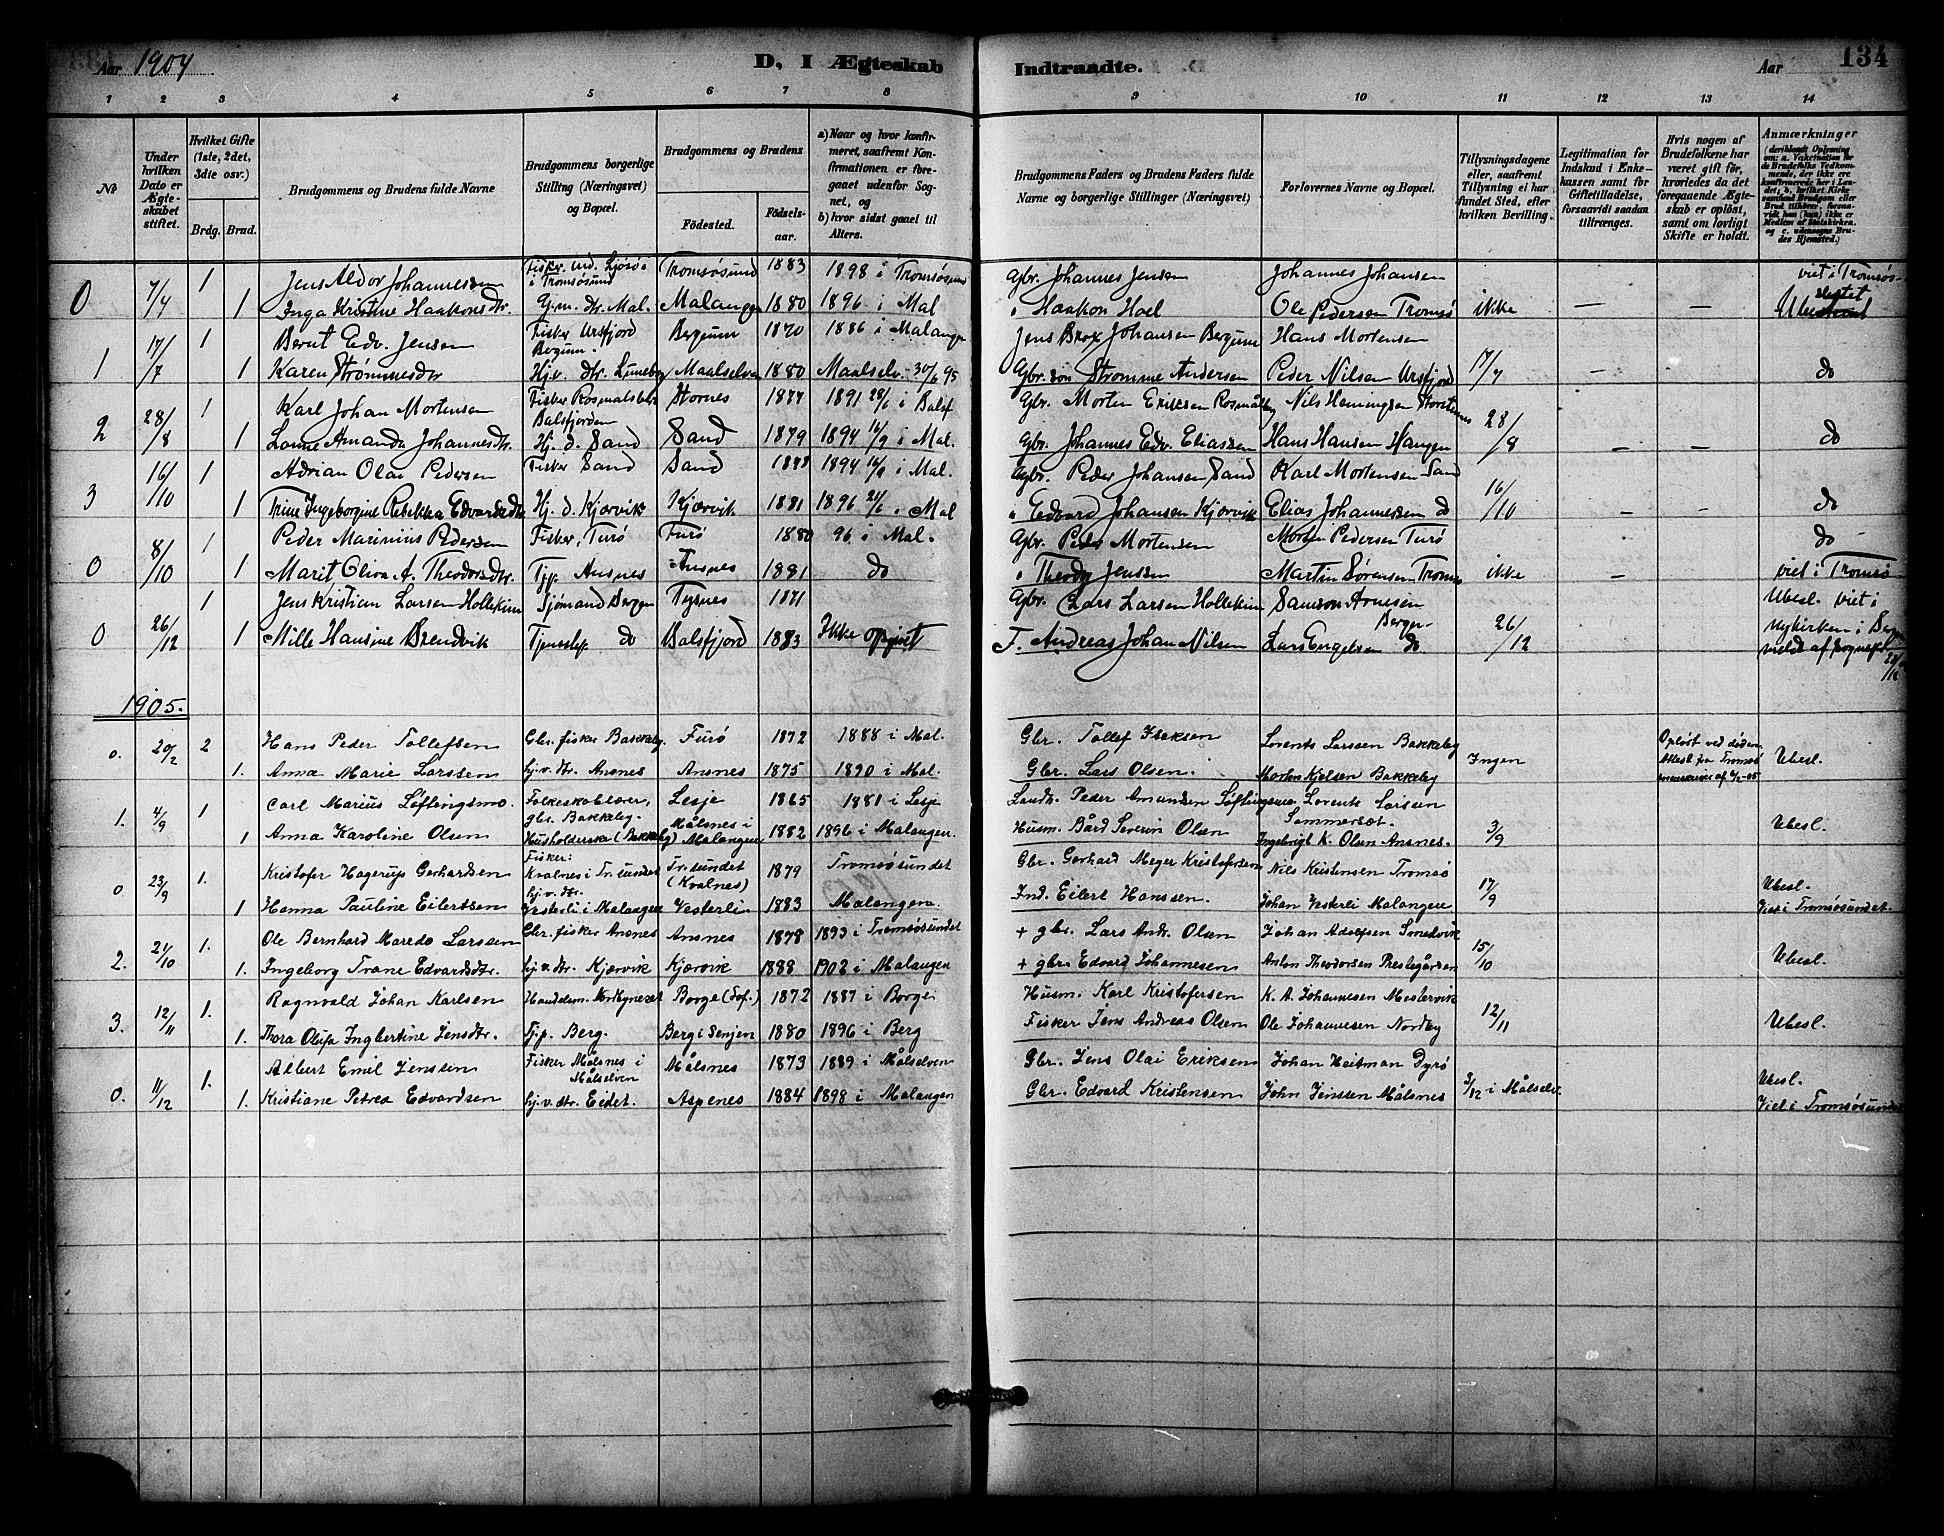 Aar 1904
D, I Ægteskab Indtraadte.
Aar
134
1 2 3 4 5 6 7 8 9 10 11 12 13 14
No
Under hvilken Dato er Ægteskabet stiftet.
Hvilket Gifte (1ste, 2det, 3die osv.)
Brdg. Brud.
Brudgommens og Brudens fulde Navne
Brudgommens borgerlige Stilling (Næringsvei) og Bopæl.
Brudgommens og Brudens
Fødested.
Fødselsaar.
a) Naar og hvor konfirmeret, saafremt Konfirmationen er foregaaet udenfor Sognet, og
b) hvor sidst gaaet til Alters.
Brudgommens Faders og Brudens Faders fulde Navne og borgerlige Stillinger (Næringsvei)
Forlovernes Navne og Bopæl.
Tillysningsdagene eller, saafremt Tillysning ei har fundet Sted, efter hvilken Bevilling.
Legitimation for Indskud i Enkekassen samt for Giftetilladelse, forsaavidt saadan tiltrænges.
Hvis nogen af Brudefolkene har været gift før, hvorledes da det foregaaende Ægteskab er opløst, samt om lovligt Skifte er holdt.
Anmærkninger (deriblandt Oplysning om: a. Vakcination for de Brudefolks Vedkommende, der ikke ere konfirmerede her i Landet, b. hvilket Kirkesamfund Brudgom eller Brud tilhører, forsaavidt han (hun) ikke er Medlem af Statskirken, og c. udensogns Brudes Hjemsted.)
7/7 1 Jens Aldor Johannessen Fisker, Tromsøsund Tromsøsund 1883 1898 i Tromsøsund Gbr. Johannes Jensen Johannes Johansen viet i Tromsøs-
0 1 Inga Kristine Haakonsdtr. Gjm. dtr. Mal. Malangen 1880 1896 i Mal " Haakon Hoel Ole Pedersen Tromsø ikke — —
17/7 1 Bernt Edv. Jensen Fisker Ursfjord Bergum Bergum 1870 1886 i Malangen Jens Brox Johansen Bergum Hans Mortensen
1 1 Karen Strømmesdtr Hjv. dtr. Maalselven 1880 Maalselv. 30/6 95 Gbr. søn Strømme Andersen Peder Nilsen Ursfjord 17/7 — — do
28/8 1 Karl Johan Mortensen Fisker Balsfjorden Stornes 1877 1891 28/6 i Balsf Gbr. Morten Eriksen Nils Hemingsen
2 1 Amanda Johannesdtr. Hj. d. Sand Sand 1879 1894 16/9 i Mal. Gbr. Johannes Edv. Eliassen Hans Hansen 28/8 — — do
16/10 1 Adrian Olai Pedersen Fisker Sand Sand 1894 i Mal. Gbr. Peder Johansen Sand Karl Mortensen Sand
3 1 Trine Ingeborgine Rebekka Edvardsdtr Hj. d. Kjærvik Kjærvik 1881 1896 21/6 i Mal " Edvard Johansen Kjærvik Elias Johannessen do 16/10 — — do
8/10 1 Peder Marinius Pedersen Fisker, Turø Furø 1880 96 i Mal. Gbr. Peder Mortensen Morten Pedersen Turø do
0 1 Marit Oliva A. Theodorsdtr. Tjp. Ansnes Ansnes 1881 do " Jenssen Martin Sørensen Tromsø ikke — viet i Tromsø
26/12 1 Jens Kristian Larsen Hollekim Sjømand Bergen Tysnes 1871 Gbr. Lars Larsen Hollekim Samson Arnesen Bergen Ubesl. viet i
0 1 Mille Hansine Brendvik Tjenestep do Balsfjord 1883 Ikke opgivet F. Andreas Johan Nilsen Lars Engelsen do 26/12 Nykirken i Bergen
1905.
o. 20/2 2 Hans Peder Tollefsen Gbr. fisker Bakkeby. Furø 1872 1888 i Mal. Gbr. Tollef Isaksen Lorents Larssen Bakkeby Opløst ved døden.
1. Anna Marie Larssen hj.v. dtr. Ansnes Ansnes 1875 1890 i Mal. Gbr. Lars Olsen. Morten Kjelsen Bakkeby Ingen Attest fra Tromsø Ubesl.
1. 4/9 1 Carl Marius Løftingsmo. Folkeskolelærer, gbr. Bakkeby. Lesje 1865 1881 i Lesje Landh. Peder Amundsen Løftingsmo Lorents Larsen Sommersæt.
1 Anna Karoline Olsen Husholderske (Bakkeby) Målsnes i Malangen 1882 1896 i Malangen. Husm. Bård Severin Olsen Ingebrigt K. Olsen Ansnes. 3/9 Ubesl.
o 23/9 1. Kristofer Hagerup Gerhardsen Fisker: Kvalnes i Tr. sundet Tr. sundet (Kvalnes) 1879 Tromsøsundet Gbr. Gerhard Meyer Kristofersen Nils Kristensen Tromsø
1 Hanna Pauline Eilertsen hj.v. dtr. Vesterli i Malangen Vesterli 1883 Malangen. Ind. Eilert Hanssen. Johan Vesterli Malangen 17/9 Ubesl. Viet i Tromsøsundet.
2. 21/10 1. Ole Bernhard Maredo Larssen Gbr. fisker Ansnes Ansnes 1878 1893 i Tromsøsundet + gbr. Lars Andr. Olsen Johan Adolfsen Smedvik
1. Ingeborg Trane Edvardsdtr. hj.v. dtr. Kjærvik Kjærvik 1888 1902 i Malangen + gbr. Edvard Johannesen Anton Theodorsen Prestegården 15/10 Ubesl.
3. 12/11 1. Ragnvald Johan Karlsen Handelsm. Borge (Lof.) 1872 1887 i Borge Husm. Karl Kristofersen K. A. Johannesen Mestervik
1. Thora Olufa Ingbertine Jensdtr. Tj.p. Berg. Berg i Senjen 1880 1896 i Berg Fisker Jens Andreas Olsen Ole Johannesen Nordby 12/11 Ubesl.
o. 11/12 1. Albert Emil Jenssen Fisker Målsnes i Målselven Målsnes 1873 1889 i Målselven Gbr. Jens Olai Eriksen Johan Heitman Dyrø
1. Kristiane Petrea Edvardsen hj.v. dtr. Eidet. Aspenes 1884 1898 i Malangen Gbr. Edvard Kristensen John Jenssen Målsnes 3/12 i Målselv. Ubesl. Viet i Tromsøsundet